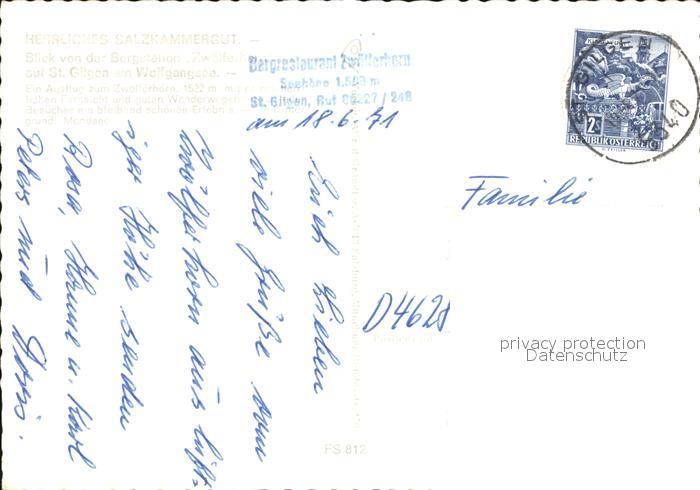 HERRLICHES SALZKAMMERGUT. —
Blick von der Bergstation „Zwölferhorn
auf St. Gilgen am Wolfgangsee. —
Ein Ausflug zum Zwölferhorn, 1522 m
lichen Fernsicht und guten Wanderwegen
Besucher ein bleibend schönes Erlebn
grund: Mondsee
Bergrestaurant Zwölferhorn
Seehöhe 1.500 m
St. Gilgen, Ruf 06227 / 248
am 18.6.71
Euch Lieben
viele Grüße vom
Zwölferhorn aus luft-
iger Höhe senden
Rosa, Hanne u. Karl
Peters und Doris.
ST. GILGEN
5340
2 S
REPUBLIK ÖSTERREICH
Familie
D 4628
privacy protection
Datenschutz
FS 812